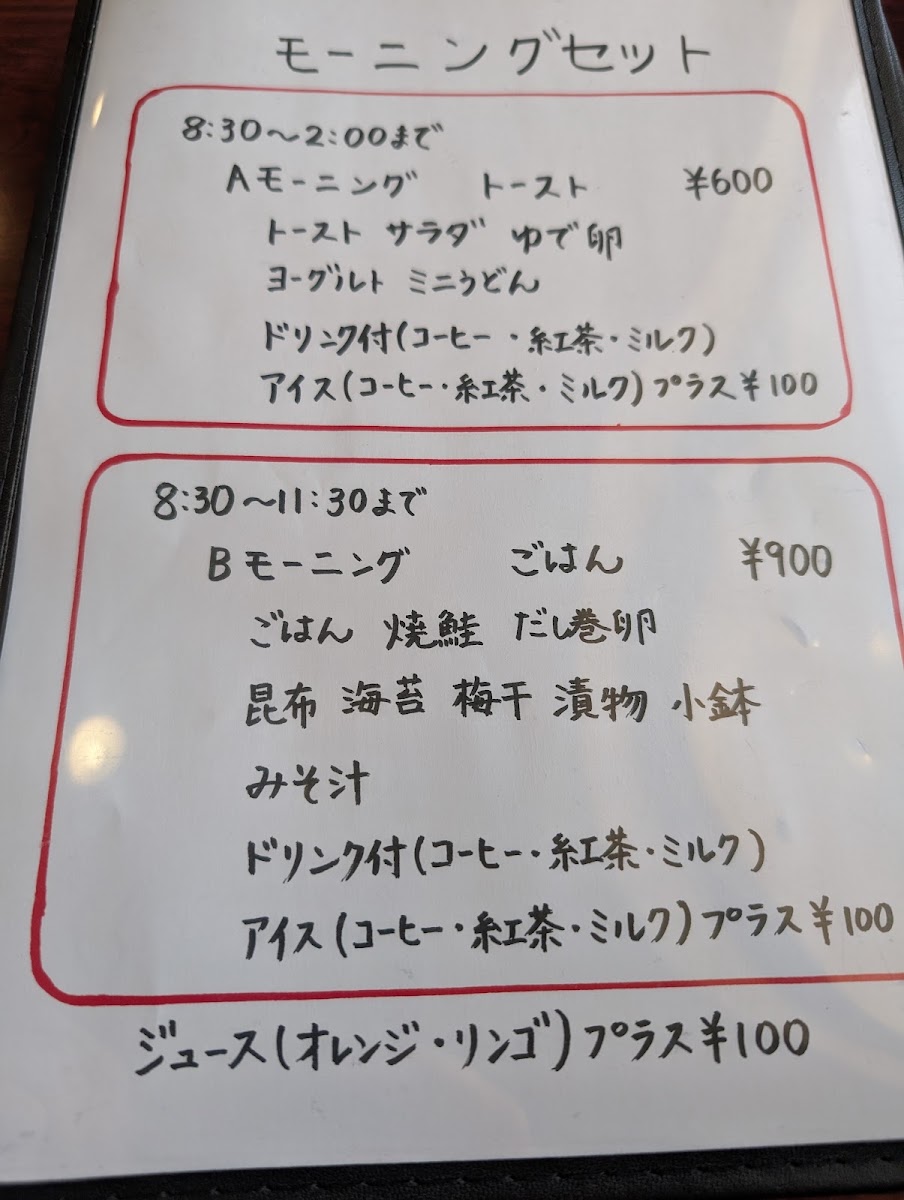 モーニングセット
8:30～2:00まで
Aモーニング トースト ¥600
トースト サラダ ゆで卵
ヨーグルト ミニうどん
ドリンク付(コーヒー・紅茶・ミルク)
アイス(コーヒー・紅茶・ミルク)プラス¥100
8:30～11:30まで
Bモーニング ごはん ¥900
ごはん 焼鮭 だし巻卵
昆布 海苔 梅干 漬物 小鉢
みそ汁
ドリンク付(コーヒー・紅茶・ミルク)
アイス(コーヒー・紅茶・ミルク)プラス¥100
ジュース(オレンジ・リンゴ)プラス¥100